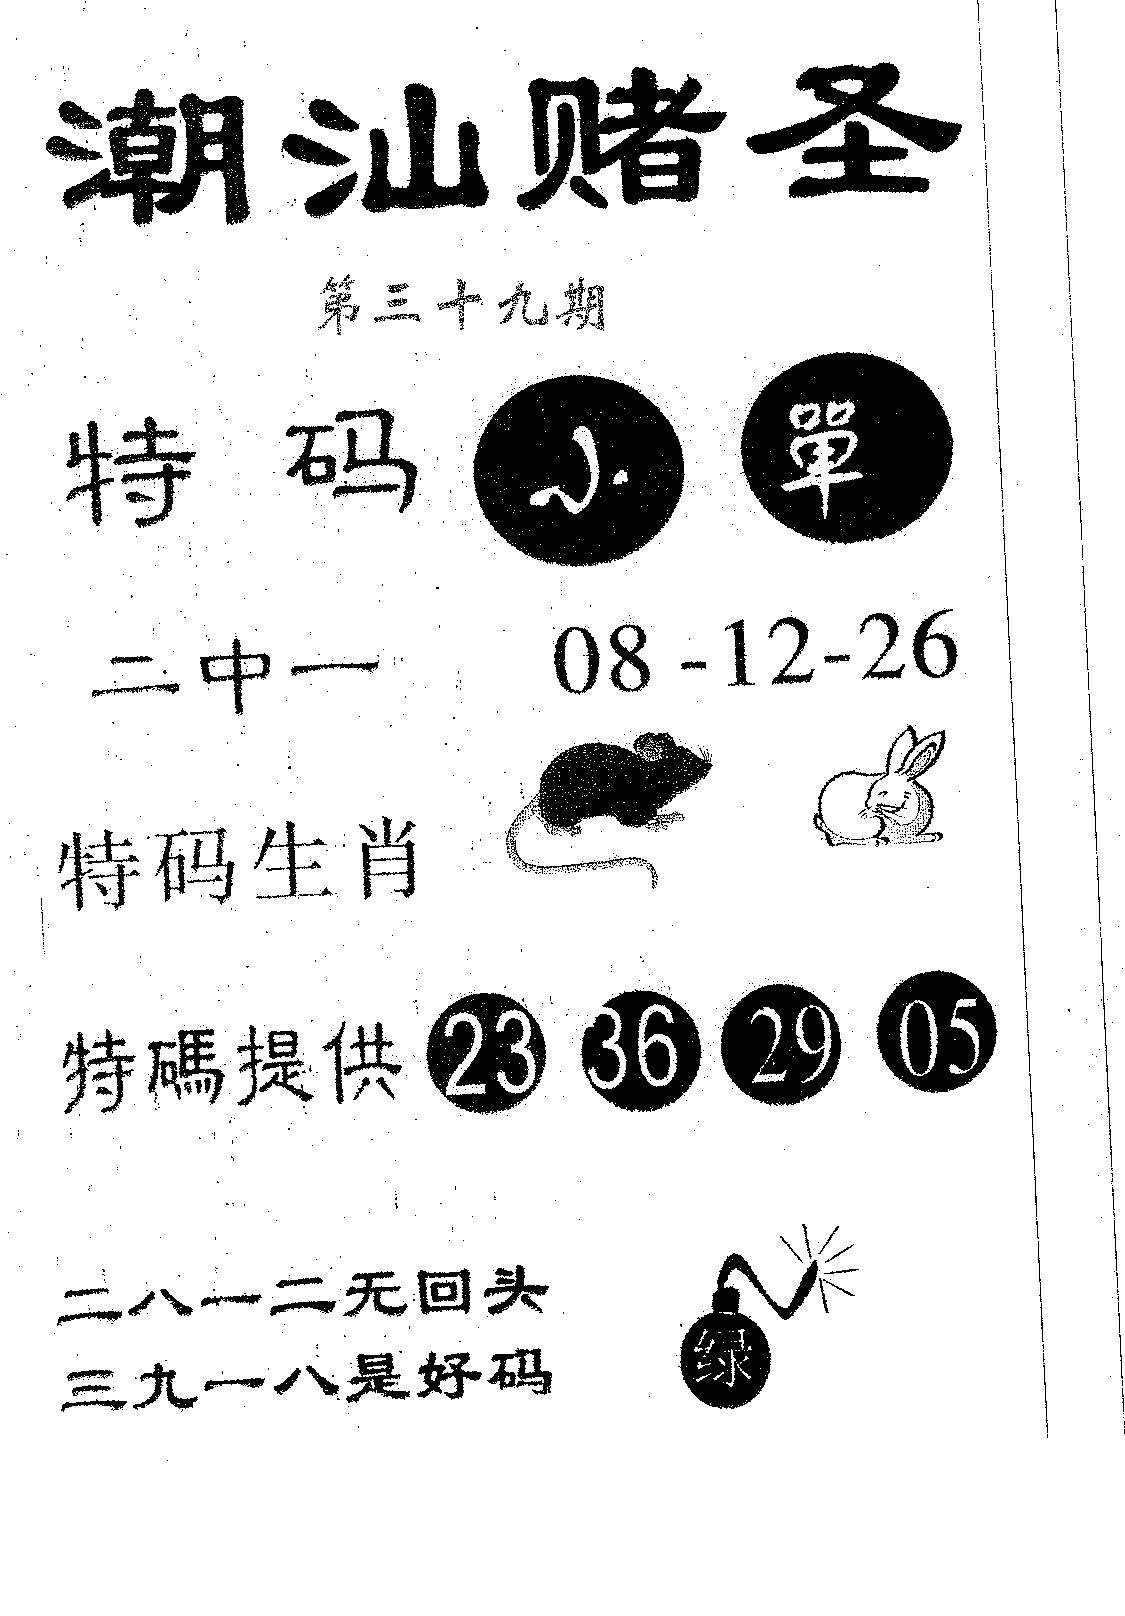 潮汕赌圣
第三十九期
特码 小 單
二中一 08-12-26
特码生肖
特碼提供 23 36 29 05
二八一二无回头
三九一八是好码
绿